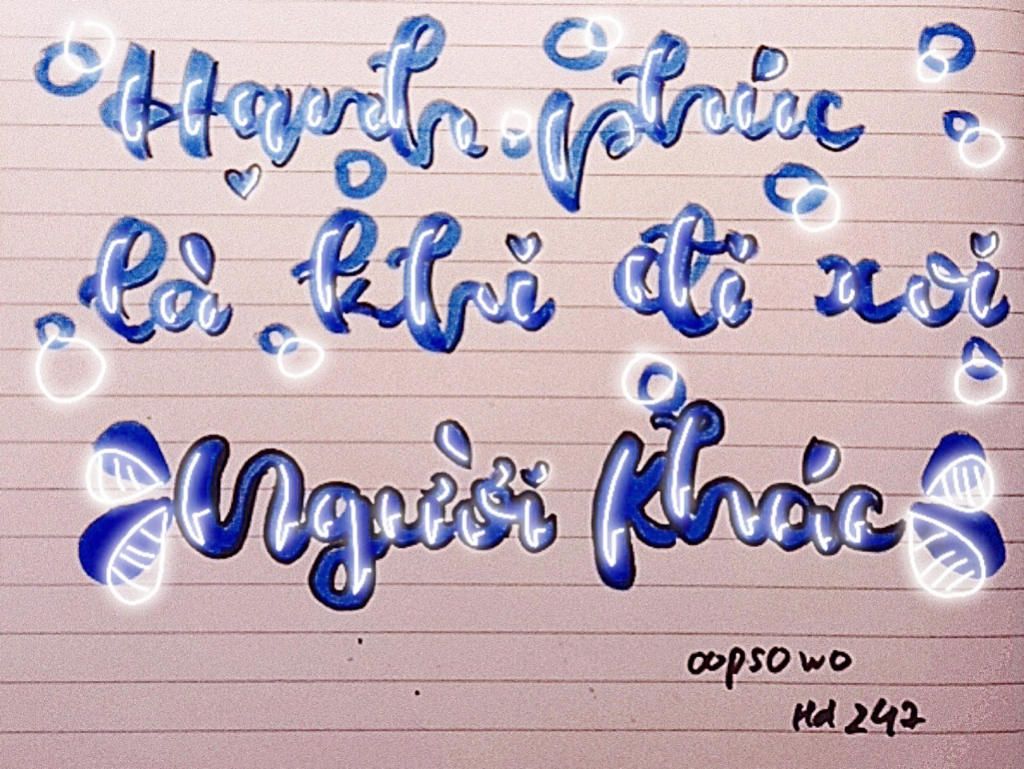 Hạnh phúc
là khi đi xơi
Người Khác
oopsowo
Hd 247